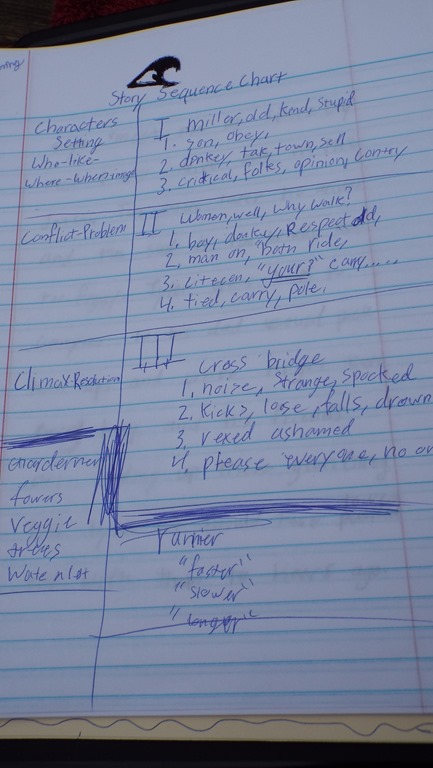 Story Sequence Chart
Characters
Setting
Who-like-
Where-When
I miller, old, kind, stupid
1. son, obey,
2. donkey, tak, town, sell
3. critical, folks, opinion, contry
Conflict-Problem
II Women, well, Why walk?
1. boy, donkey, Respect old,
2. man on, "both ride,
3. citecen, "your?" carry.....
4. tied, carry, pole,
Climax Resolution
III cross bridge
1. noize, strange, spocked
2. Kicks, lose, falls, drown
3. vexed ashamed
4. please everyone, no on
fowers
Veggie
trees
Wate n lot
runner
"faster"
"slower"